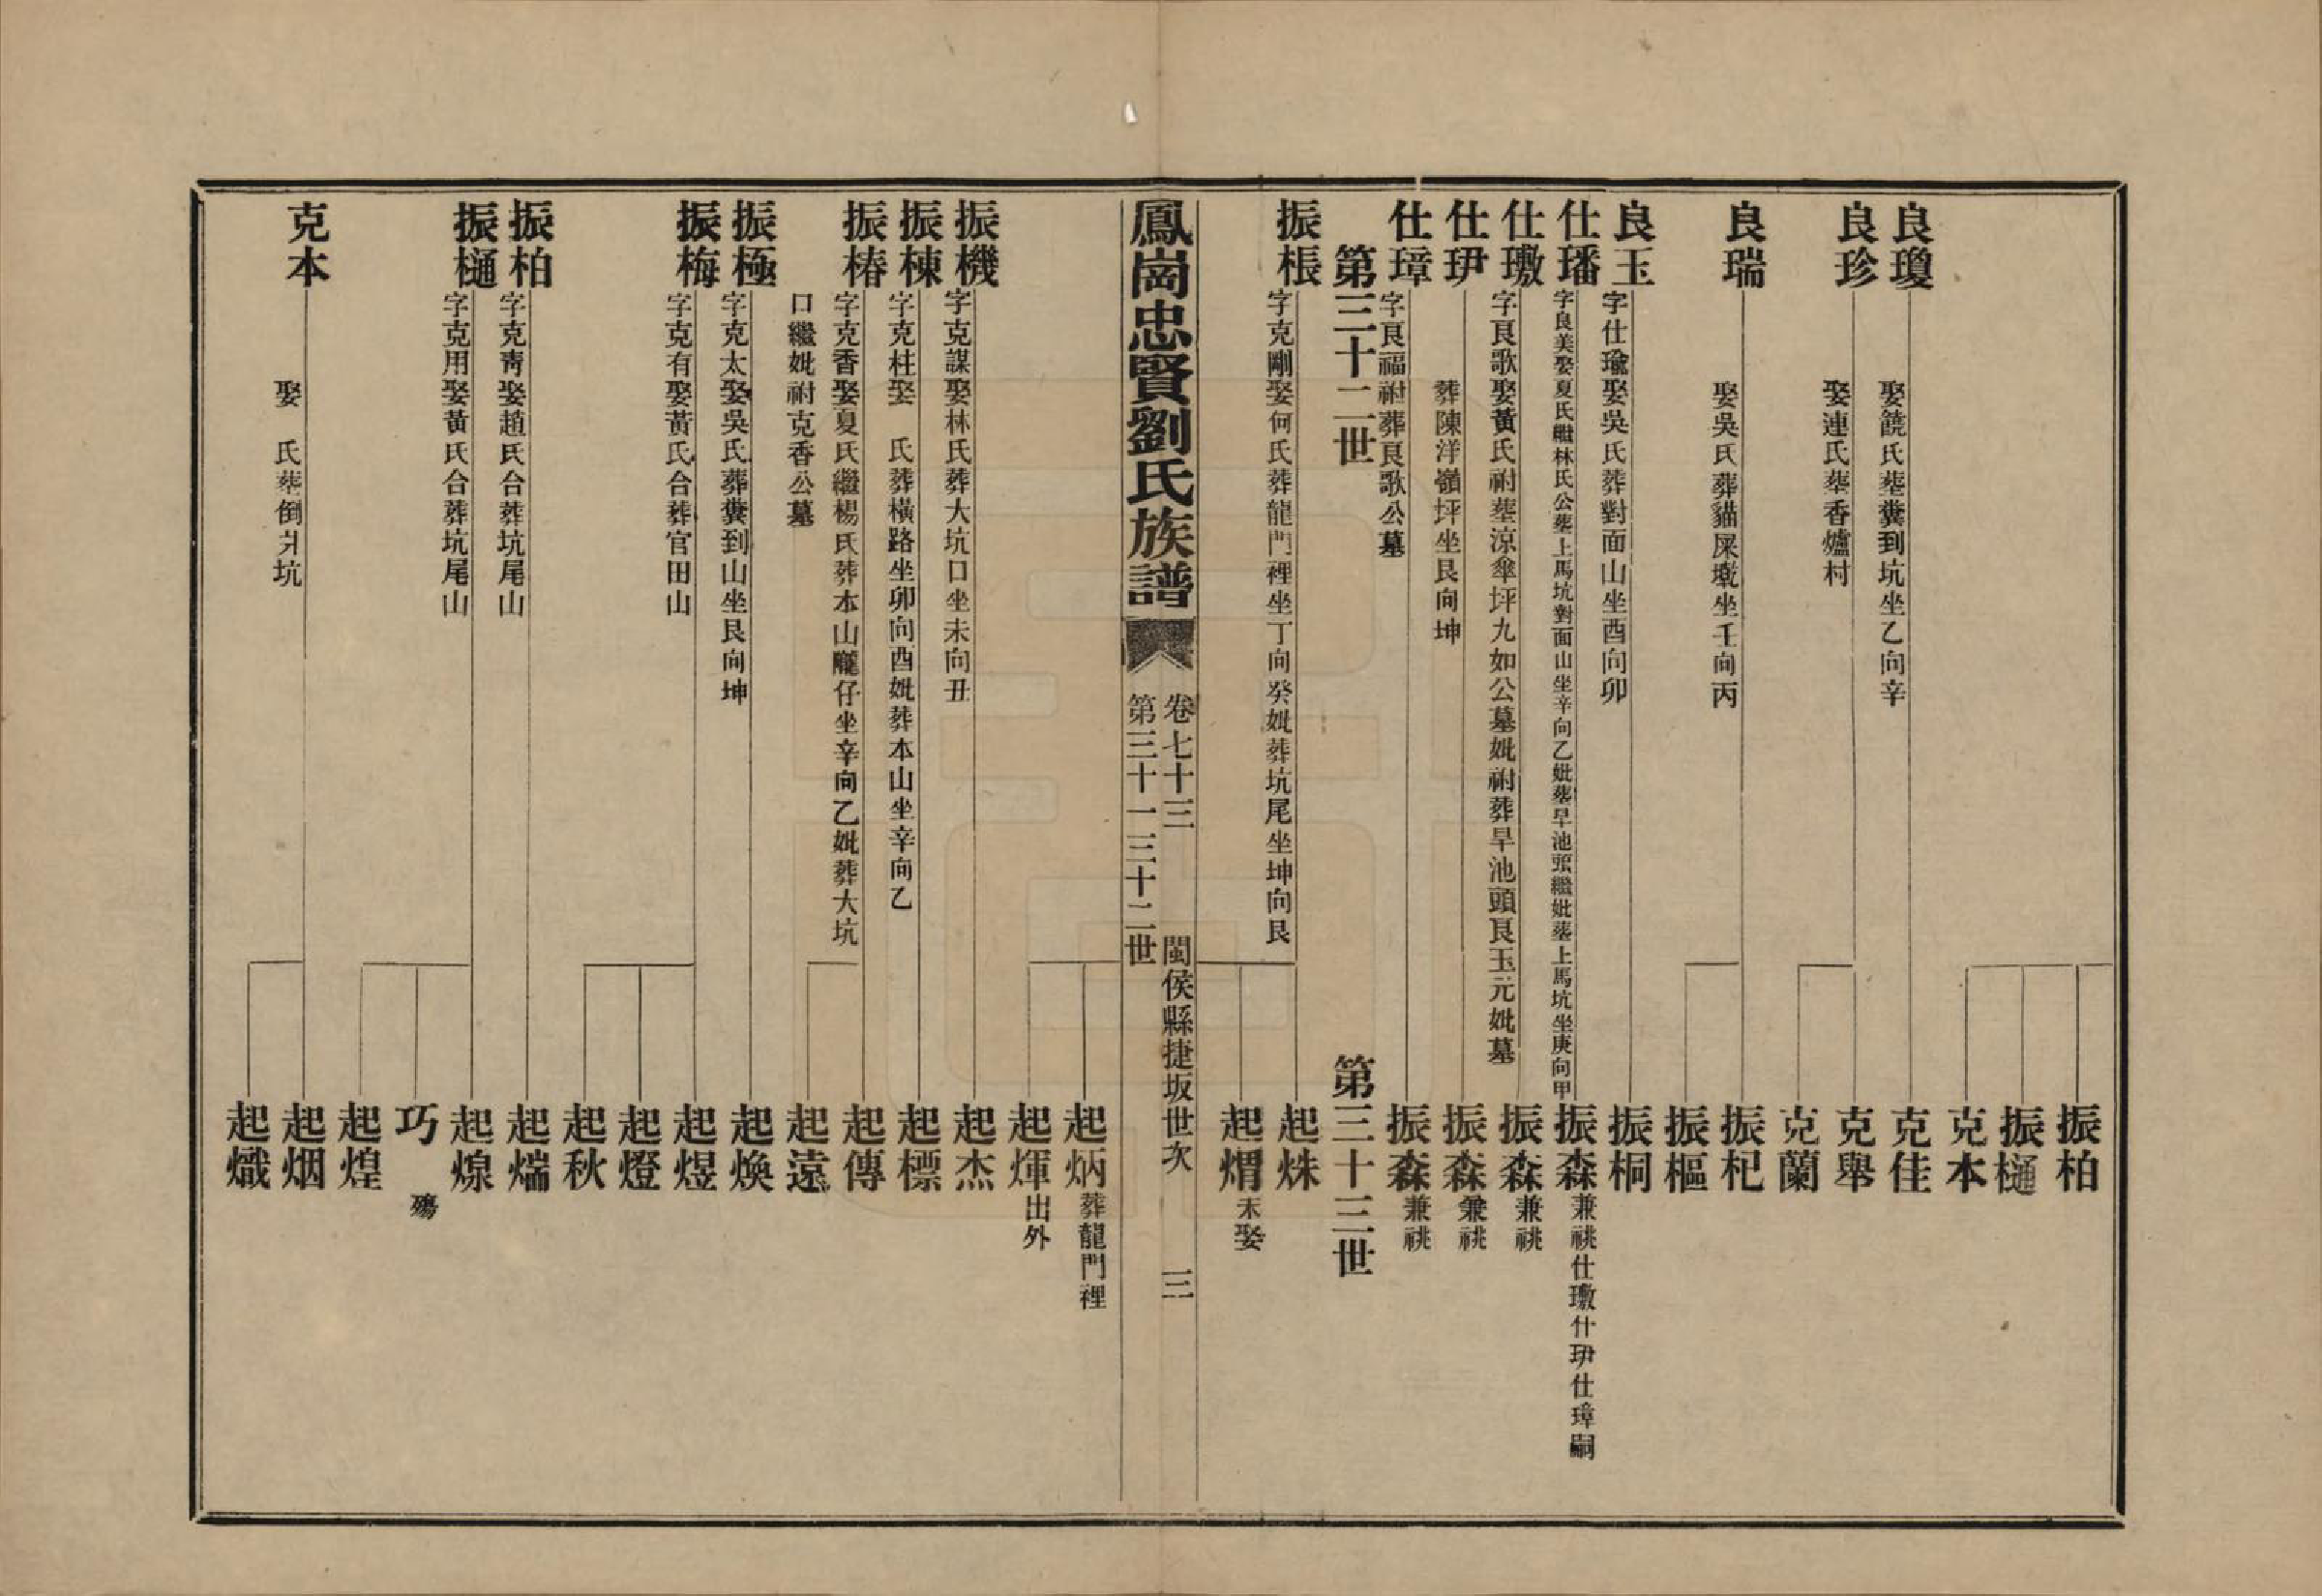 振柏
振樋
克本
良瓊 娶饒氏塟糞到坑坐乙向辛 克佳
良珍 娶連氏塟香爐村 克舉
克蘭
良瑞 娶吳氏葬貓屎墘坐壬向丙 振杞
振樞
良玉 字仕瑜娶吳氏葬對面山坐酉向卯 振桐
仕璠 字良美娶夏氏繼林氏公塟上馬坑對面山坐辛向乙妣塟旱池頭繼妣塟上馬坑坐庚向甲 振森 兼祧仕璥什玬仕璋嗣
仕璥 字良歌娶黃氏祔塟涼傘坪九如公墓妣祔葬旱池頭良玉元妣墓 振森 兼祧
仕玬 葬陳洋嶺坪坐艮向坤 振森 兼祧
仕璋 字良福祔葬良歌公墓 振森 兼祧
第三十二世 第三十三世
振棖 字克剛娶何氏葬龍門裡坐丁向癸妣葬坑尾坐坤向艮 起炢
起煟 未娶
鳳崗忠賢劉氏族譜 卷七十三 閩侯縣捷坂世次 三
第三十一三十二世
起炳 葬龍門裡
起煇 出外
振機 字克謀娶林氏葬大坑口坐未向丑 起杰
振棟 字克柱娶 氏葬橫路坐卯向酉妣葬本山坐辛向乙 起標
振椿 字克香娶夏氏繼楊氏葬本山隴仔坐辛向乙妣葬大坑 起傳
口繼妣祔克香公墓 起遠
振極 字克太娶吳氏葬糞到山坐艮向坤 起煥
振梅 字克有娶黃氏合葬官田山 起煜
起燈
起秋
振柏 字克靑娶趙氏合葬坑尾山 起煓
振樋 字克用娶黃氏合葬坑尾山 起煷
巧 殤
起煌
克本 娶 氏塟倒爿坑 起烟
起熾